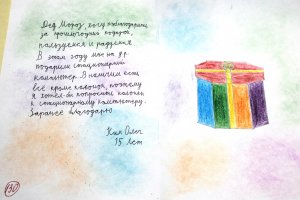 Дед Мороз, хочу поблагодарить
за прошлогодний подарок,
пользуемся и радуемся
В этом году мне на др
подарили стационарный
компьютер. В наличии есть
всё кроме колонок, поэтому
я хотел бы попросить колонки
к стационарному компьютеру.
Заранее благодарю
Олег
15 лет
130